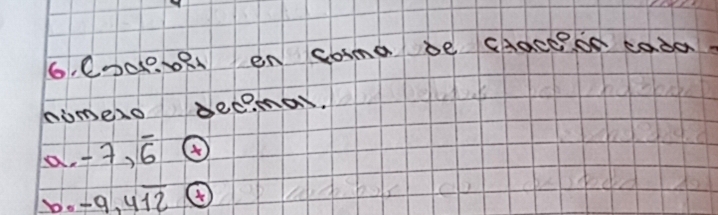 6. Escribir en forma de fracción cada
número decimal.
a. -7,6̅ +
b. -9,41̅2̅ +